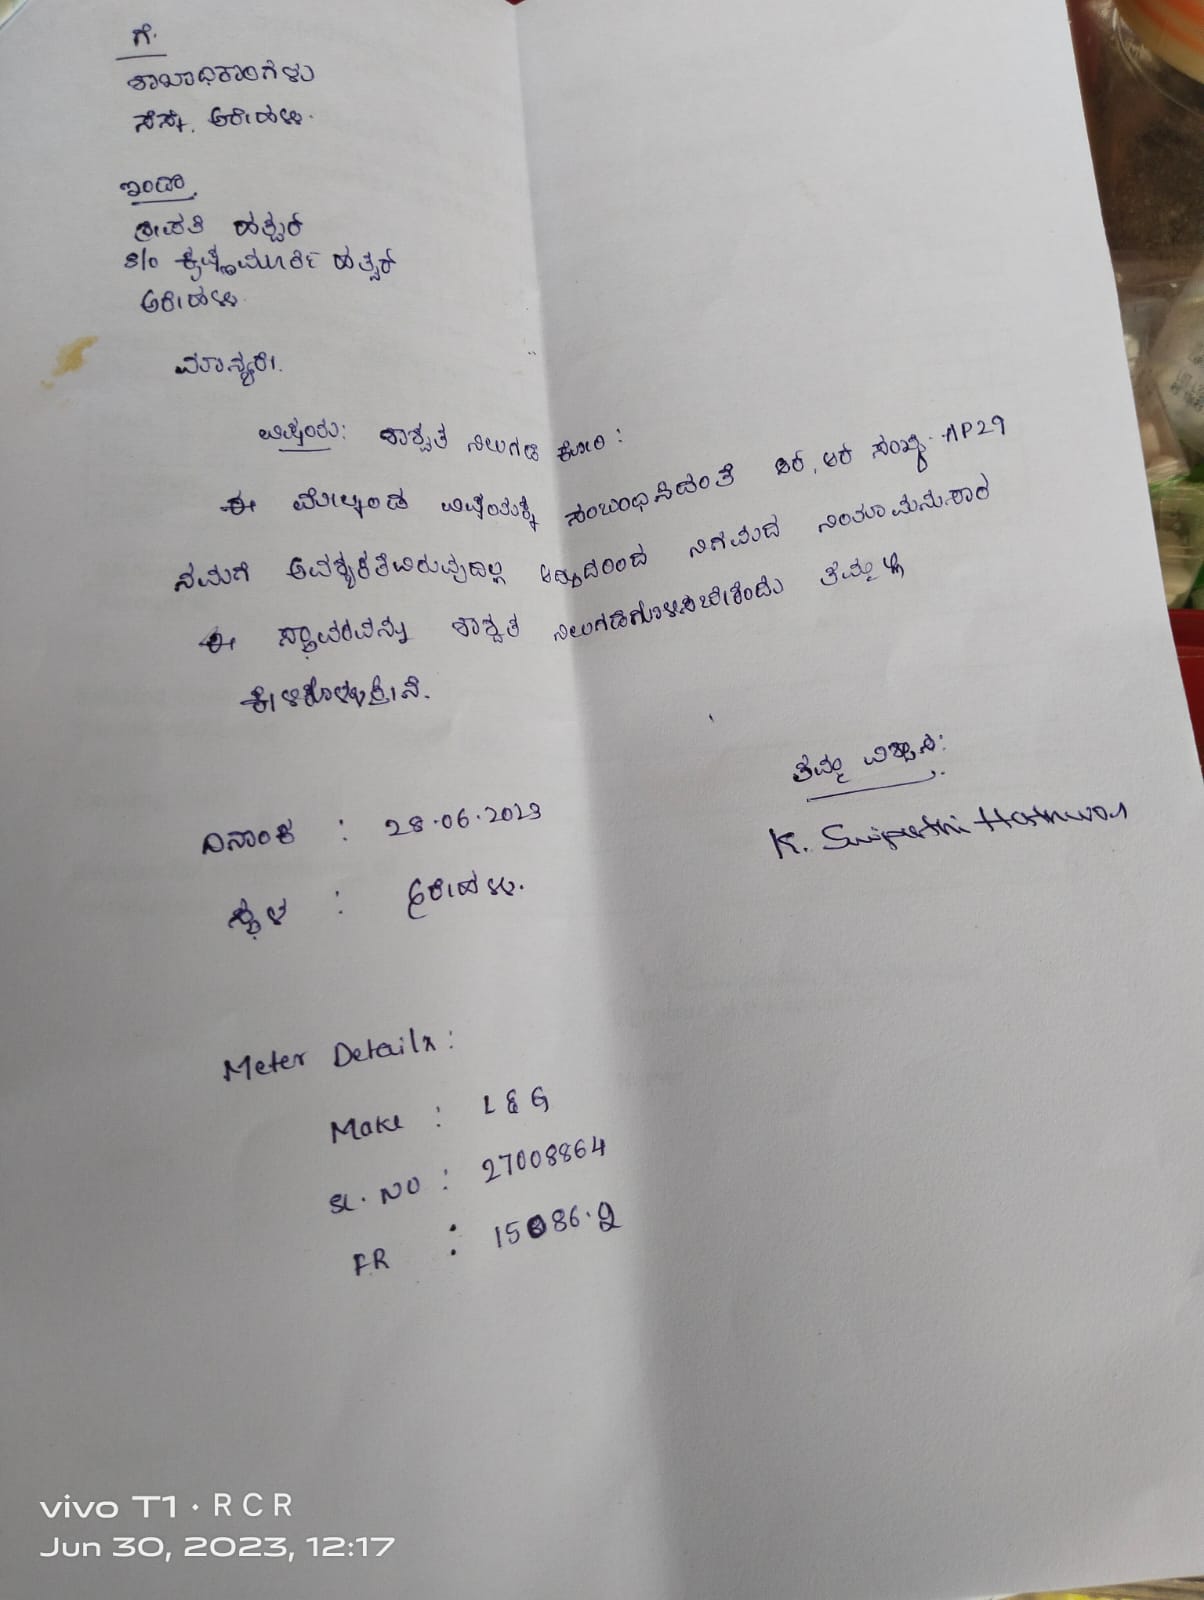 ಗೆ.
ಶಾಖಾಧಿಕಾರಿಗಳು
ಸೆಸ್ಕ್. ಅರೇಹಳ್ಳಿ.
ಇಂದಾ
ಶ್ರೀಪತಿ ಹತ್ವಾರ್
S/o ಕೃಷ್ಣಮೂರ್ತಿ ಹತ್ವಾರ್
ಅರೇಹಳ್ಳಿ
ಮಾನ್ಯರೇ.
ವಿಷಯ: ಶಾಶ್ವತ ನಿಲುಗಡೆ ಕೋರಿ :
ಈ ಮೇಲ್ಕಂಡ ವಿಷಯಕ್ಕೆ ಸಂಬಂಧಿಸಿದಂತೆ ಆರ್, ಆರ್ ಸಂಖ್ಯೆ. AP29
ನಮಗೆ ಅವಶ್ಯಕತೆವಿರುವುದಿಲ್ಲ ಆದ್ದುದರಿಂದ ನಿಗಮದ ನಿಯಾಮನುಸಾರ
ಈ ಸ್ಥಾವರವನ್ನು ಶಾಶ್ವತ ನಿಲುಗಡೆಗೊಳಿಸಬೇಕೆಂದು ತಮ್ಮಲ್ಲಿ
ಕೇಳಿಕೊಳ್ಳುತ್ತೇನೆ.
ತಮ್ಮ ವಿಶ್ವಾಸಿ:
K. Sripathi Hathwar
ದಿನಾಂಕ : 28.06.2023
ಸ್ಥಳ : ಅರೇಹಳ್ಳಿ.
Meter Details :
Make : L & G
SL. NO : 27008864
FR : 15086.2
vivo T1 · RCR
Jun 30, 2023, 12:17